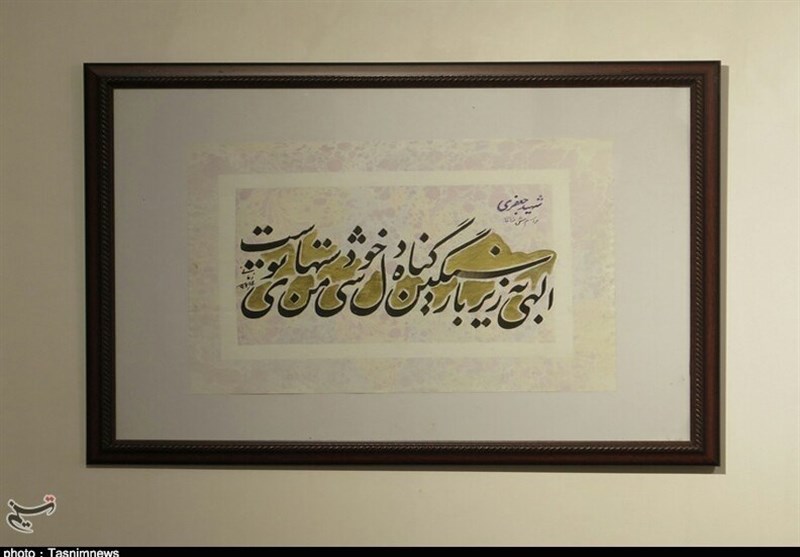 شهید جعفری
الهی به زیر بار سنگین گناه دل خوشی من دستهای توست
تسنیم
photo : Tasnimnews